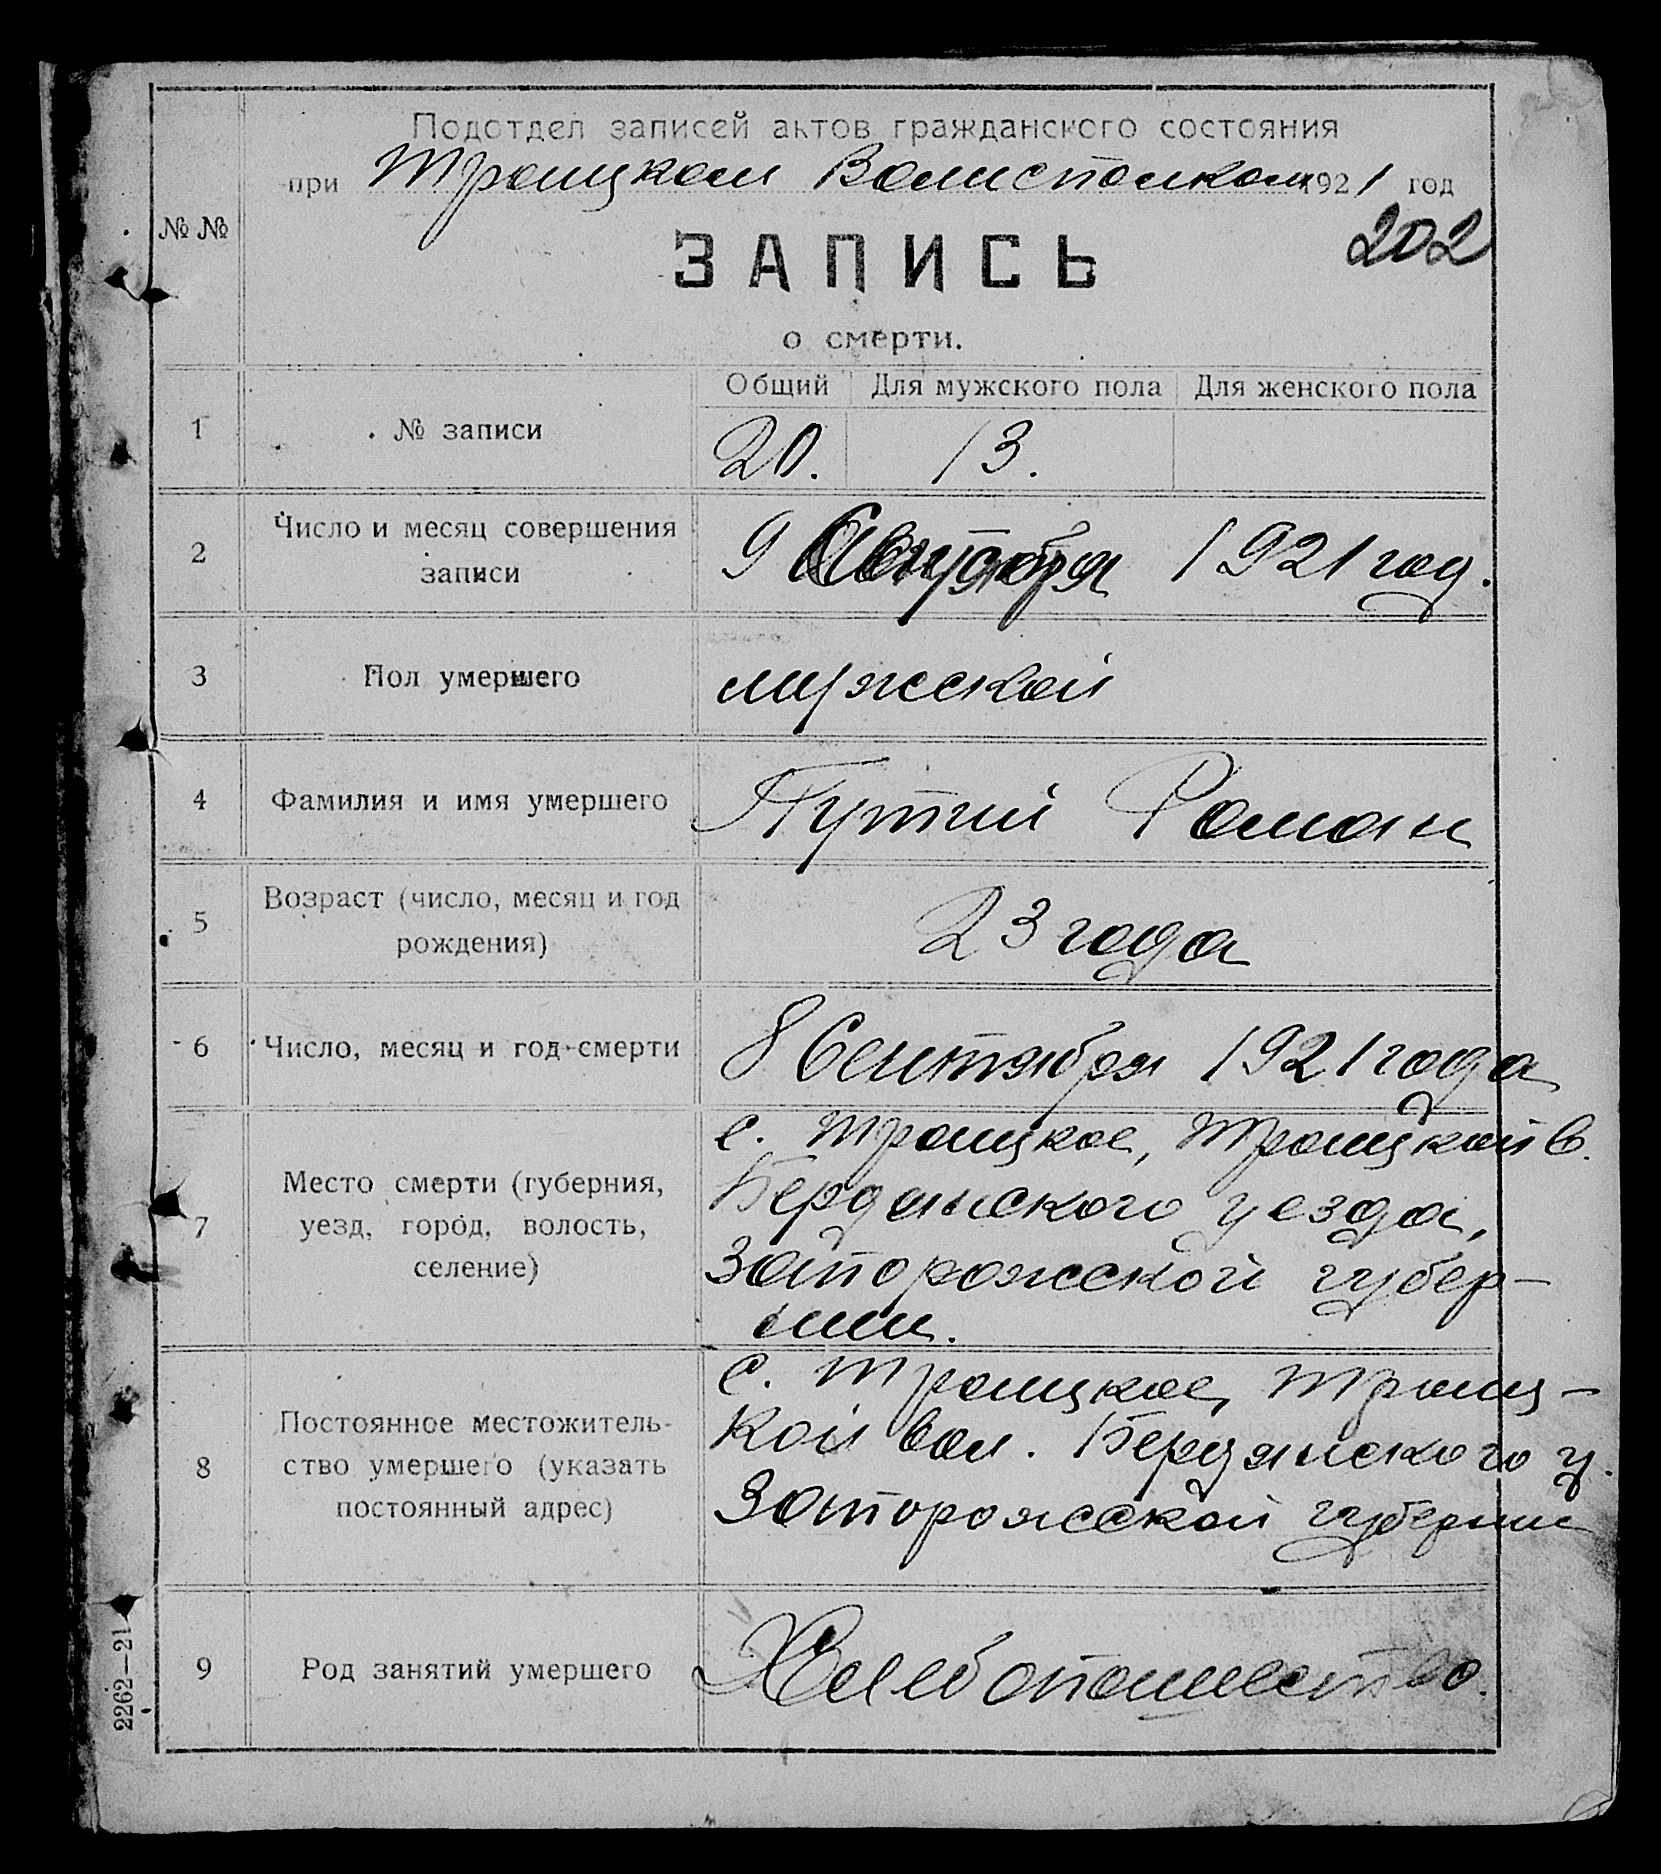 Подотдел записей актов гражданского состояния
при Троицком Волисполкоми 1921 год
№ №
202
ЗАПИСЬ
о смерти.
Общий Для мужского пола Для женского пола
1 № записи 20. 13.
2 Число и месяц совершения
записи
9 1921 год.
3 Пол умершего мужской
4 Фамилия и имя умершего Путий Роман
5 Возраст (число, месяц и год
рождения)
23 года
6 Число, месяц и год смерти 8 Сентября 1921 года
7 Место смерти (губерния,
уезд, город, волость,
селение)
с. Троицкое, Троицкой в.
Бердянского уезда,
Запорожской губер-
нии.
8 Постоянное местожитель-
ство умершего (указать
постоянный адрес)
с. Троицкое, Троиц-
кой вол. Бердянского у.
Запорожской губернии
9 Род занятий умершего Хлебопашество.
2262—21